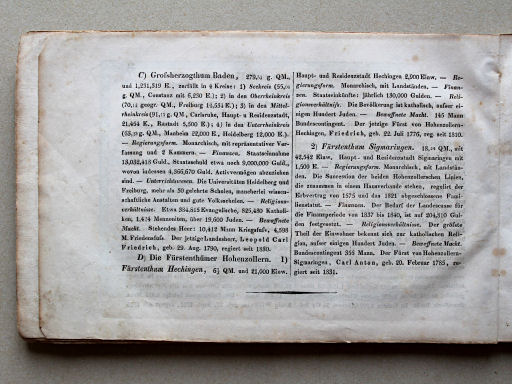 C) Großherzogthum Baden, 279,54 g. QM.,
und 1,231,319 E., zerfällt in 4 Kreise: 1) Seekreis
g. QM., Constanz mit 6,230 E.); 2) in den Oberrheinkreis
geogr. QM., Freiburg 14,534 E.); 3) in den Mittel-
rheinkreis g. QM., Carlsruhe, Haupt- u. Residenzstadt,
21,464 E., Rastadt 5,500 E.); 4) in den Unterrheinkreis
g. QM., Manheim 22,000 E., Heidelberg 12,000 E.).
— Regierungsform. Monarchisch, mit repräsentativer Ver-
fassung und 2 Kammern. — Finanzen. Staatseinnahme
13,032,418 Guld., Staatsschuld etwa noch 9,000,000 Guld.,
wovon indessen 4,366,670 Guld. Activvermögen abzuziehen
sind. — Unterrichtswesen. Die Universitäten Heidelberg und
Freiburg, mehr als 50 gelehrte Schulen, mancherlei wissen-
schaftliche Anstalten und gute Volksschulen. — Religions-
verhältnisse. Etwa 384,515 Evangelische, 825,430 Katholi-
ken, 1,474 Menoniten, über 19,600 Juden. — Bewaffnete
Macht. Stehendes Heer: 10,412 Mann Kriegsfuß, 4,598
M. Friedensfuß. Der jetzige Landesherr, Leopold Carl
Friedrich, geb. 29. Aug. 1790, regiert seit 1830.
D) Die Fürstenthümer Hohenzollern. 1)
Fürstenthum Hechingen, 6½ QM. und 21,000 Einw.
Haupt- und Residenzstadt Hechingen 2,900 Einw. — Re-
gierungsform. Monarchisch, mit Landständen. — Finan-
zen. Staatseinkünfte: jährlich 130,000 Gulden. — Reli-
gionsverhältnisse. Die Bevölkerung ist katholisch, außer ei-
nigen Hundert Juden. — Bewaffnete Macht. 145 Mann
Bundescontingent. Der jetzige Fürst von Hohenzollern-
Hechingen, Friedrich, geb. 22. Juli 1776, reg. seit 1810.
2) Fürstenthum Sigmaringen. QM., mit
42,542 Einw. Haupt- und Residenzstadt Sigmaringen mit
1,500 E. — Regierungsform. Monarchisch, mit Landstän-
den. Die Succession der beiden Hohenzollerischen Linien,
die zusammen in einem Hausverbande stehen, regulirt der
Erbvertrag von 1575 und das 1821 abgeschlossene Fami-
lienstatut. — Finanzen. Der Bedarf der Landescasse für
die Finanzperiode von 1837 bis 1840, ist auf 204,310 Gul-
den festgesetzt. — Religionsverhältnisse. Der größte
Theil der Einwohner bekennt sich zur katholischen Reli-
gion, außer einigen Hundert Juden. — Bewaffnete Macht.
Bundescontingent 356 Mann. Der Fürst von Hohenzollern-
Sigmaringen, Carl Anton, geb. 20. Februar 1785, re-
giert seit 1831.